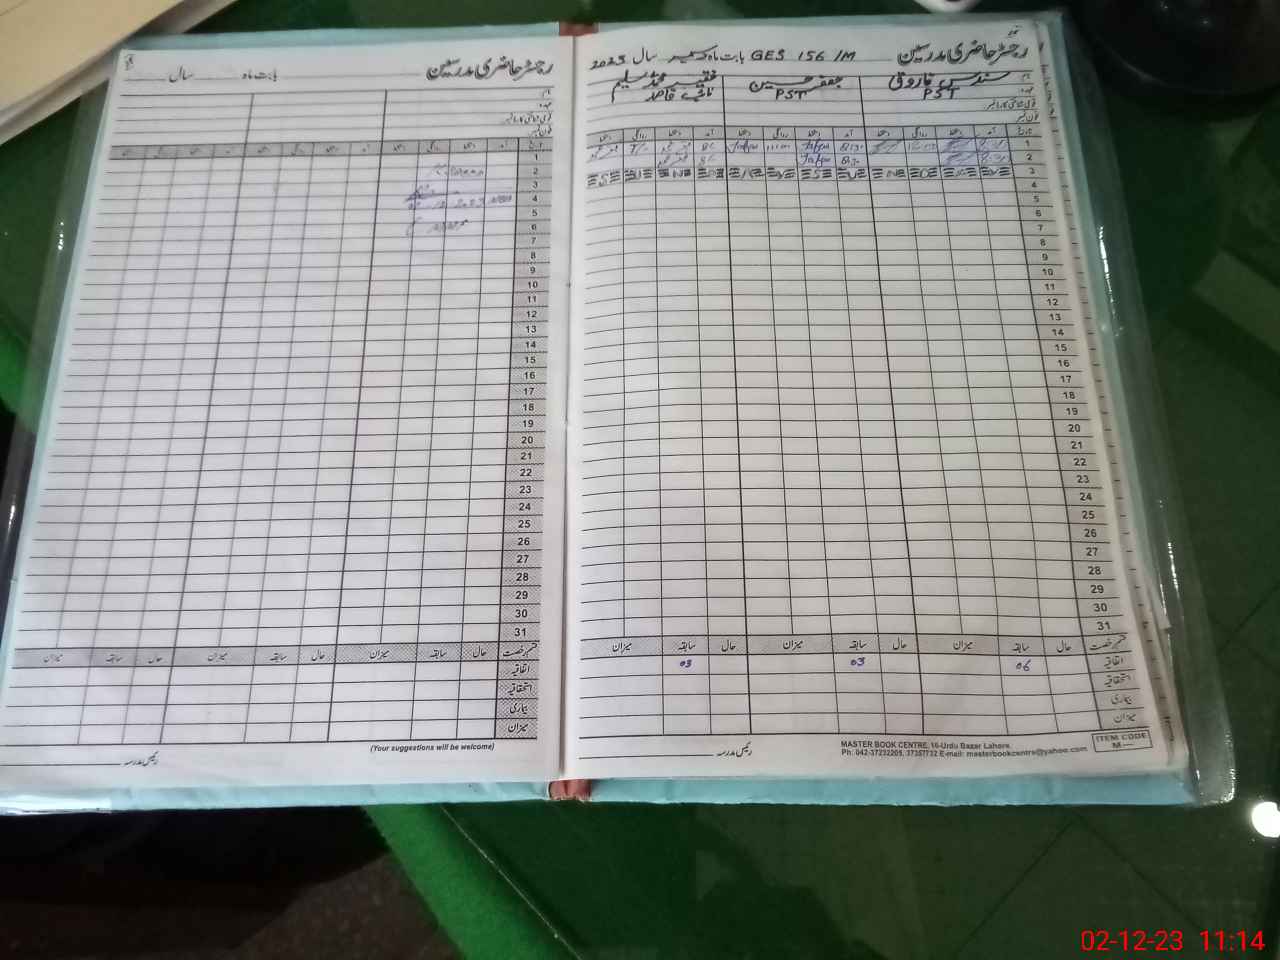 رجسٹر حاضری مدرسین GES 156/M بابت ماہ دسمبر سال 2023
نام سندس فاروقی جعفر حسین
عہدہ PST PST نائب قاصد
قومی شناختی کارڈ نمبر
فون نمبر
تاریخ آمد دستخط روانگی دستخط آمد دستخط روانگی دستخط آمد دستخط روانگی دستخط
1
2
3 S U N D A Y
4
5
6
7
8
9
10
11
12
13
14
15
16
17
18
19
20
21
22
23
24
25
26
27
28
29
30
31
قسم رخصت حال سابقہ میزان حال سابقہ میزان حال سابقہ میزان
اتفاقیہ 06 03 03
استحقاقیہ
بیماری
میزان
رئیس مدرسہ
MASTER BOOK CENTRE, 16-Urdu Bazar Lahore.
Ph. 042-37232205, 37357732 E-mail: masterbookcentre@yahoo.com
ITEM CODE
M—
رجسٹر حاضری مدرسین بابت ماہ سال
نام
عہدہ
قومی شناختی کارڈ نمبر
فون نمبر
تاریخ آمد دستخط روانگی دستخط آمد دستخط روانگی دستخط آمد دستخط روانگی دستخط
1
2
3
4
5
6
7
8
9
10
11
12
13
14
15
16
17
18
19
20
21
22
23
24
25
26
27
28
29
30
31
قسم رخصت حال سابقہ میزان حال سابقہ میزان حال سابقہ میزان
اتفاقیہ
استحقاقیہ
بیماری
میزان
(Your suggestions will be welcome)
رئیس مدرسہ
02-12-23 11:14